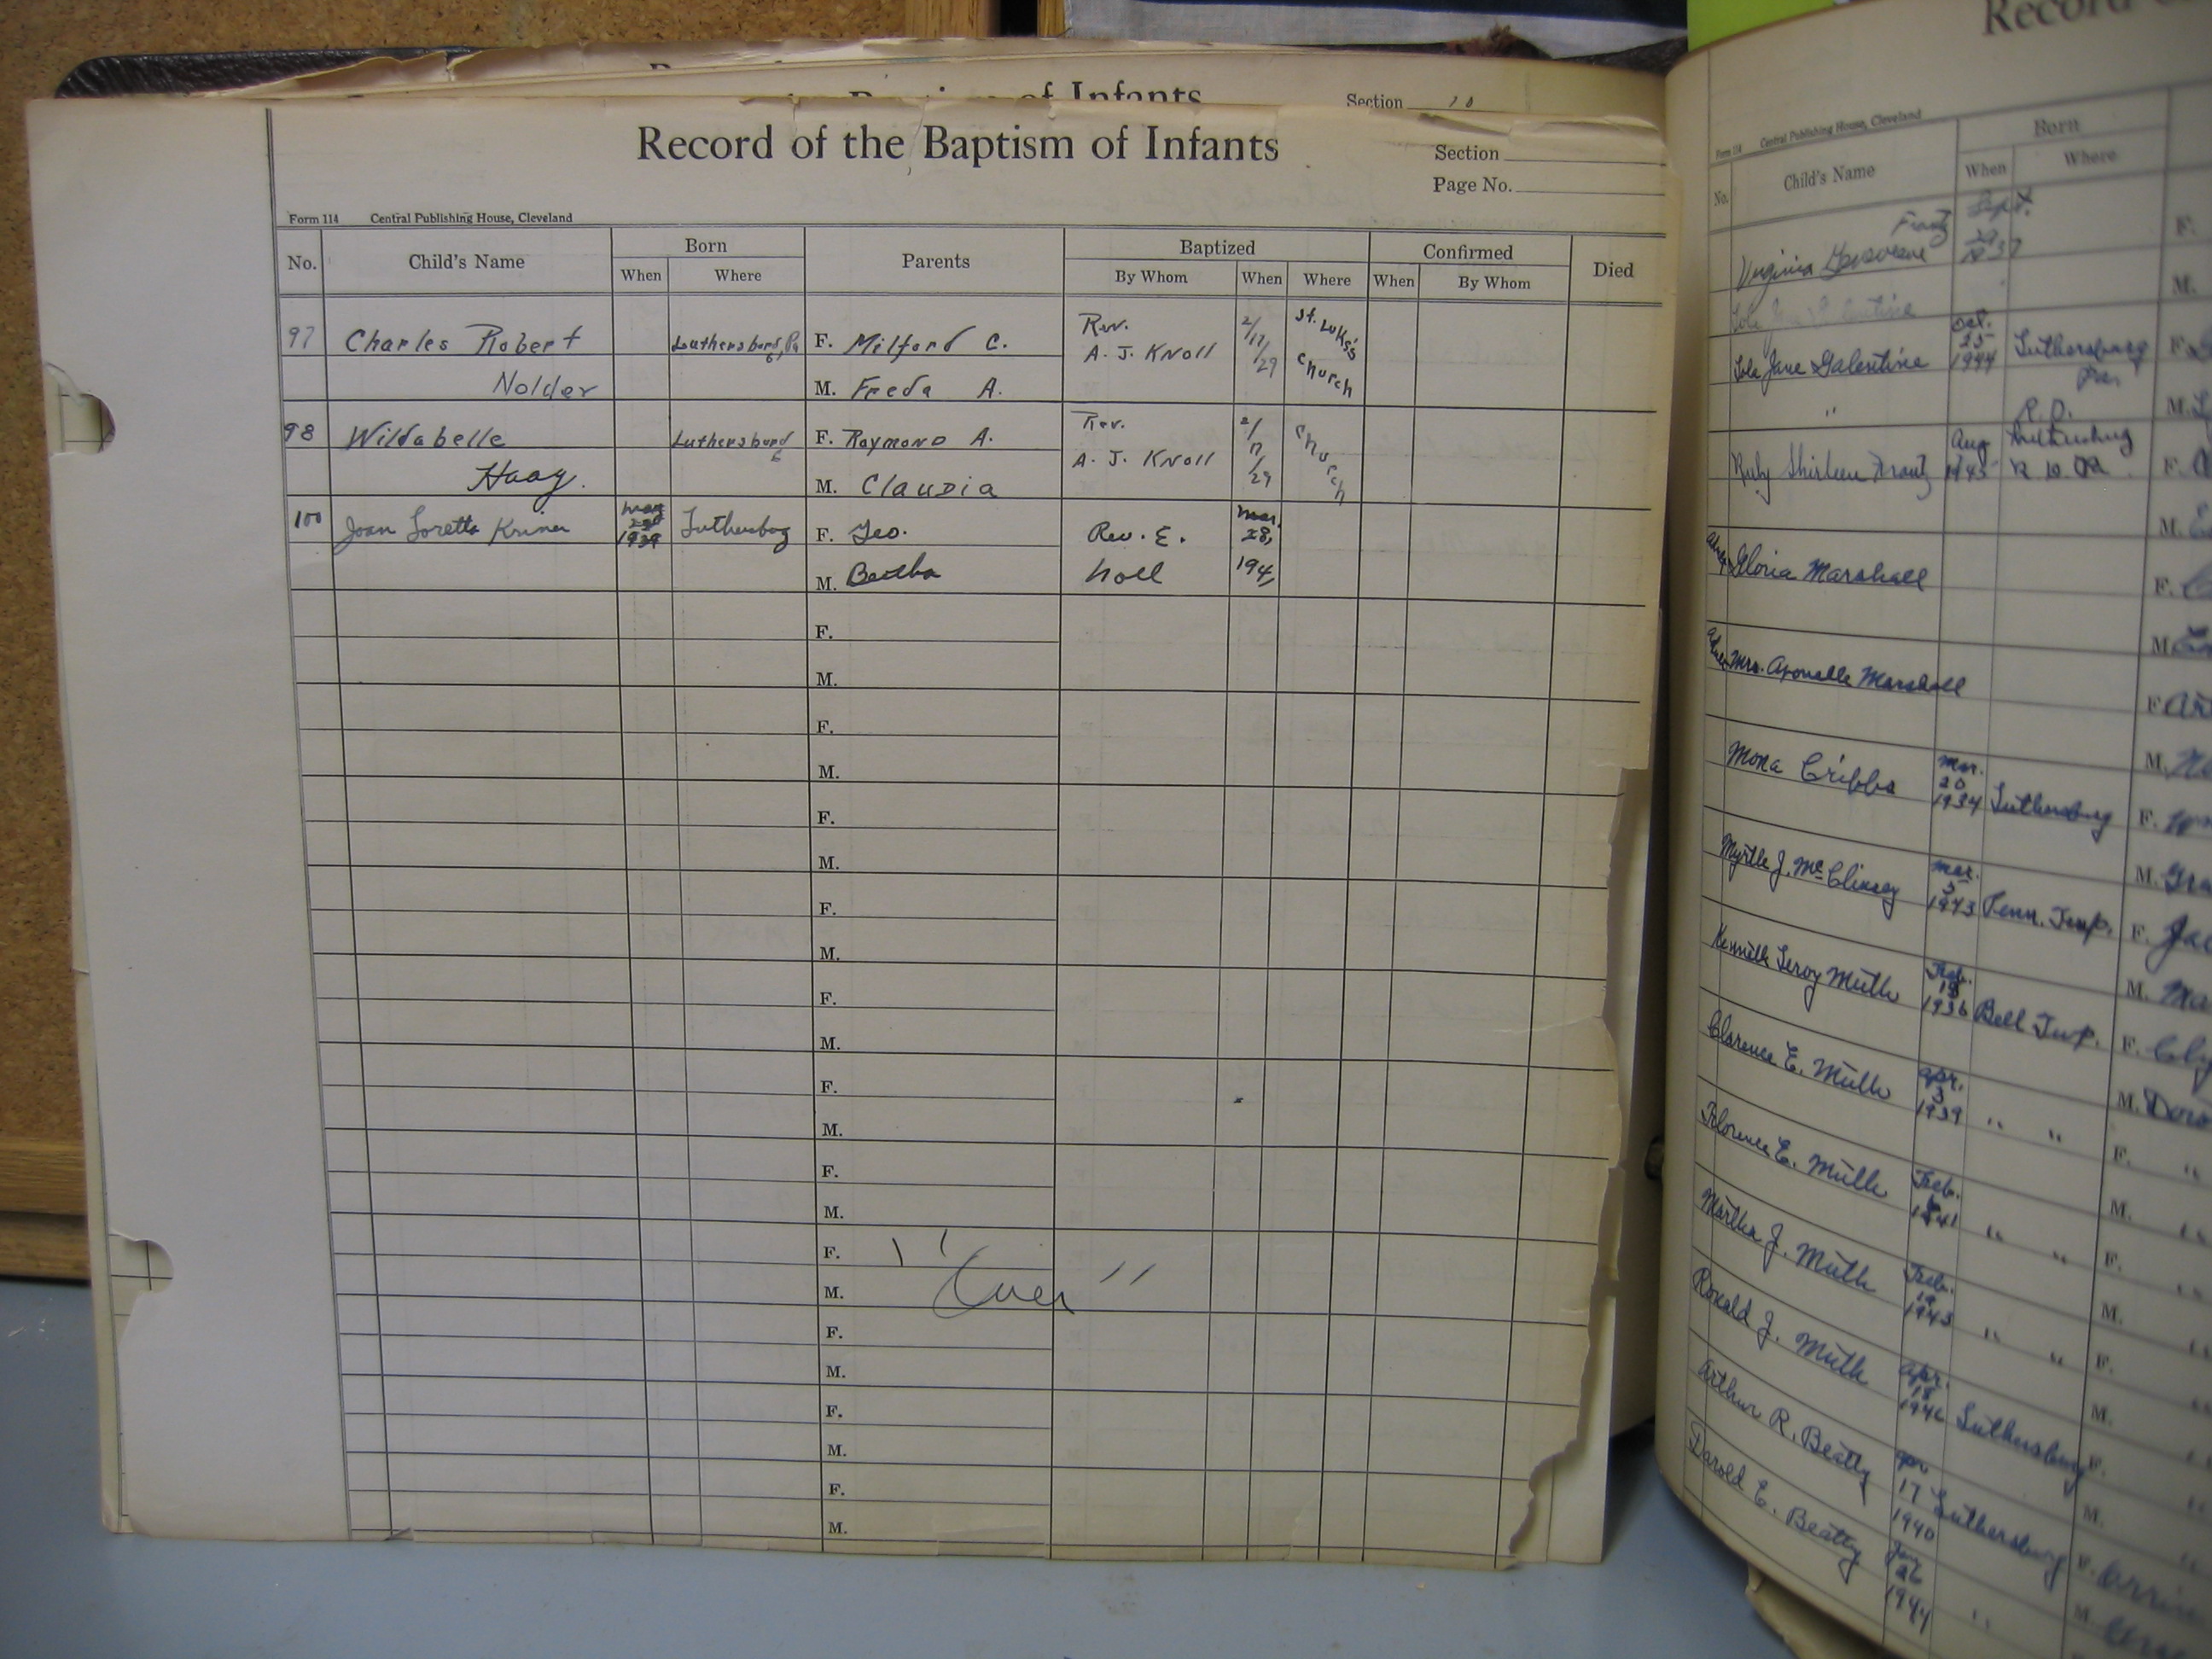 of Infants
Section 10
Record of the Baptism of Infants
Section
Page No.
Form 114 Central Publishing House, Cleveland
No. Child's Name Born Parents Baptized Confirmed Died
When Where By Whom When Where When By Whom
97 Charles Robert Luthersburg, Pa F. Milford C. Rev. 2/17/29 St. Luke's
Nolder M. Freda A. A. J. Knoll Church
98 Wildabelle Luthersburg F. Raymond A. Rev. 2/17/29 Church
Haag. M. Claudia A. J. Knoll
100 Joan Loretta Kriner 1939 Luthersbog F. Geo. Rev. E. Mar. 28,
M. Bertha Noll 194
F.
M.
F.
M.
F.
M.
F.
M.
F.
M.
F.
M.
F.
M.
F.
M.
"Over"
F.
M.
F.
M.
F.
M.
Record
Form 114 Central Publishing House, Cleveland
No. Child's Name Born
When Where
Frantz Sept.
Virginia F.
M.
Lola Jane Galentine
Lola Jane Galentine Oct. 25 1944 Luthersburg Pa. F.
" M.
Ruby Shirleen Frantz Aug 1945 R.D. Luthersburg F.
M.
Gloria Marshall F.
M.
Mrs. Marshall F.
M.
Mona Cribbs Mar. 20 1934 Luthersburg F.
M.
Myrtle J. Mar. 3 1943 Penn. Twp. F.
M.
Kenneth Leroy Muth Feb. 1936 Bell Twp. F.
M.
Clarence E. Muth Apr. 3 1939 " " F. "
M. "
Florence E. Muth Feb. 1941 " " F. "
M. "
Martha J. Muth Feb. 19 1943 " " F. "
M. "
Ronald J. Muth Apr. 18 1946 Luthersburg F. "
M. "
Arthur R. Beatty Apr 17 1940 Luthersburg F.
M.
Darold E. Beatty Jan 26 1944 "